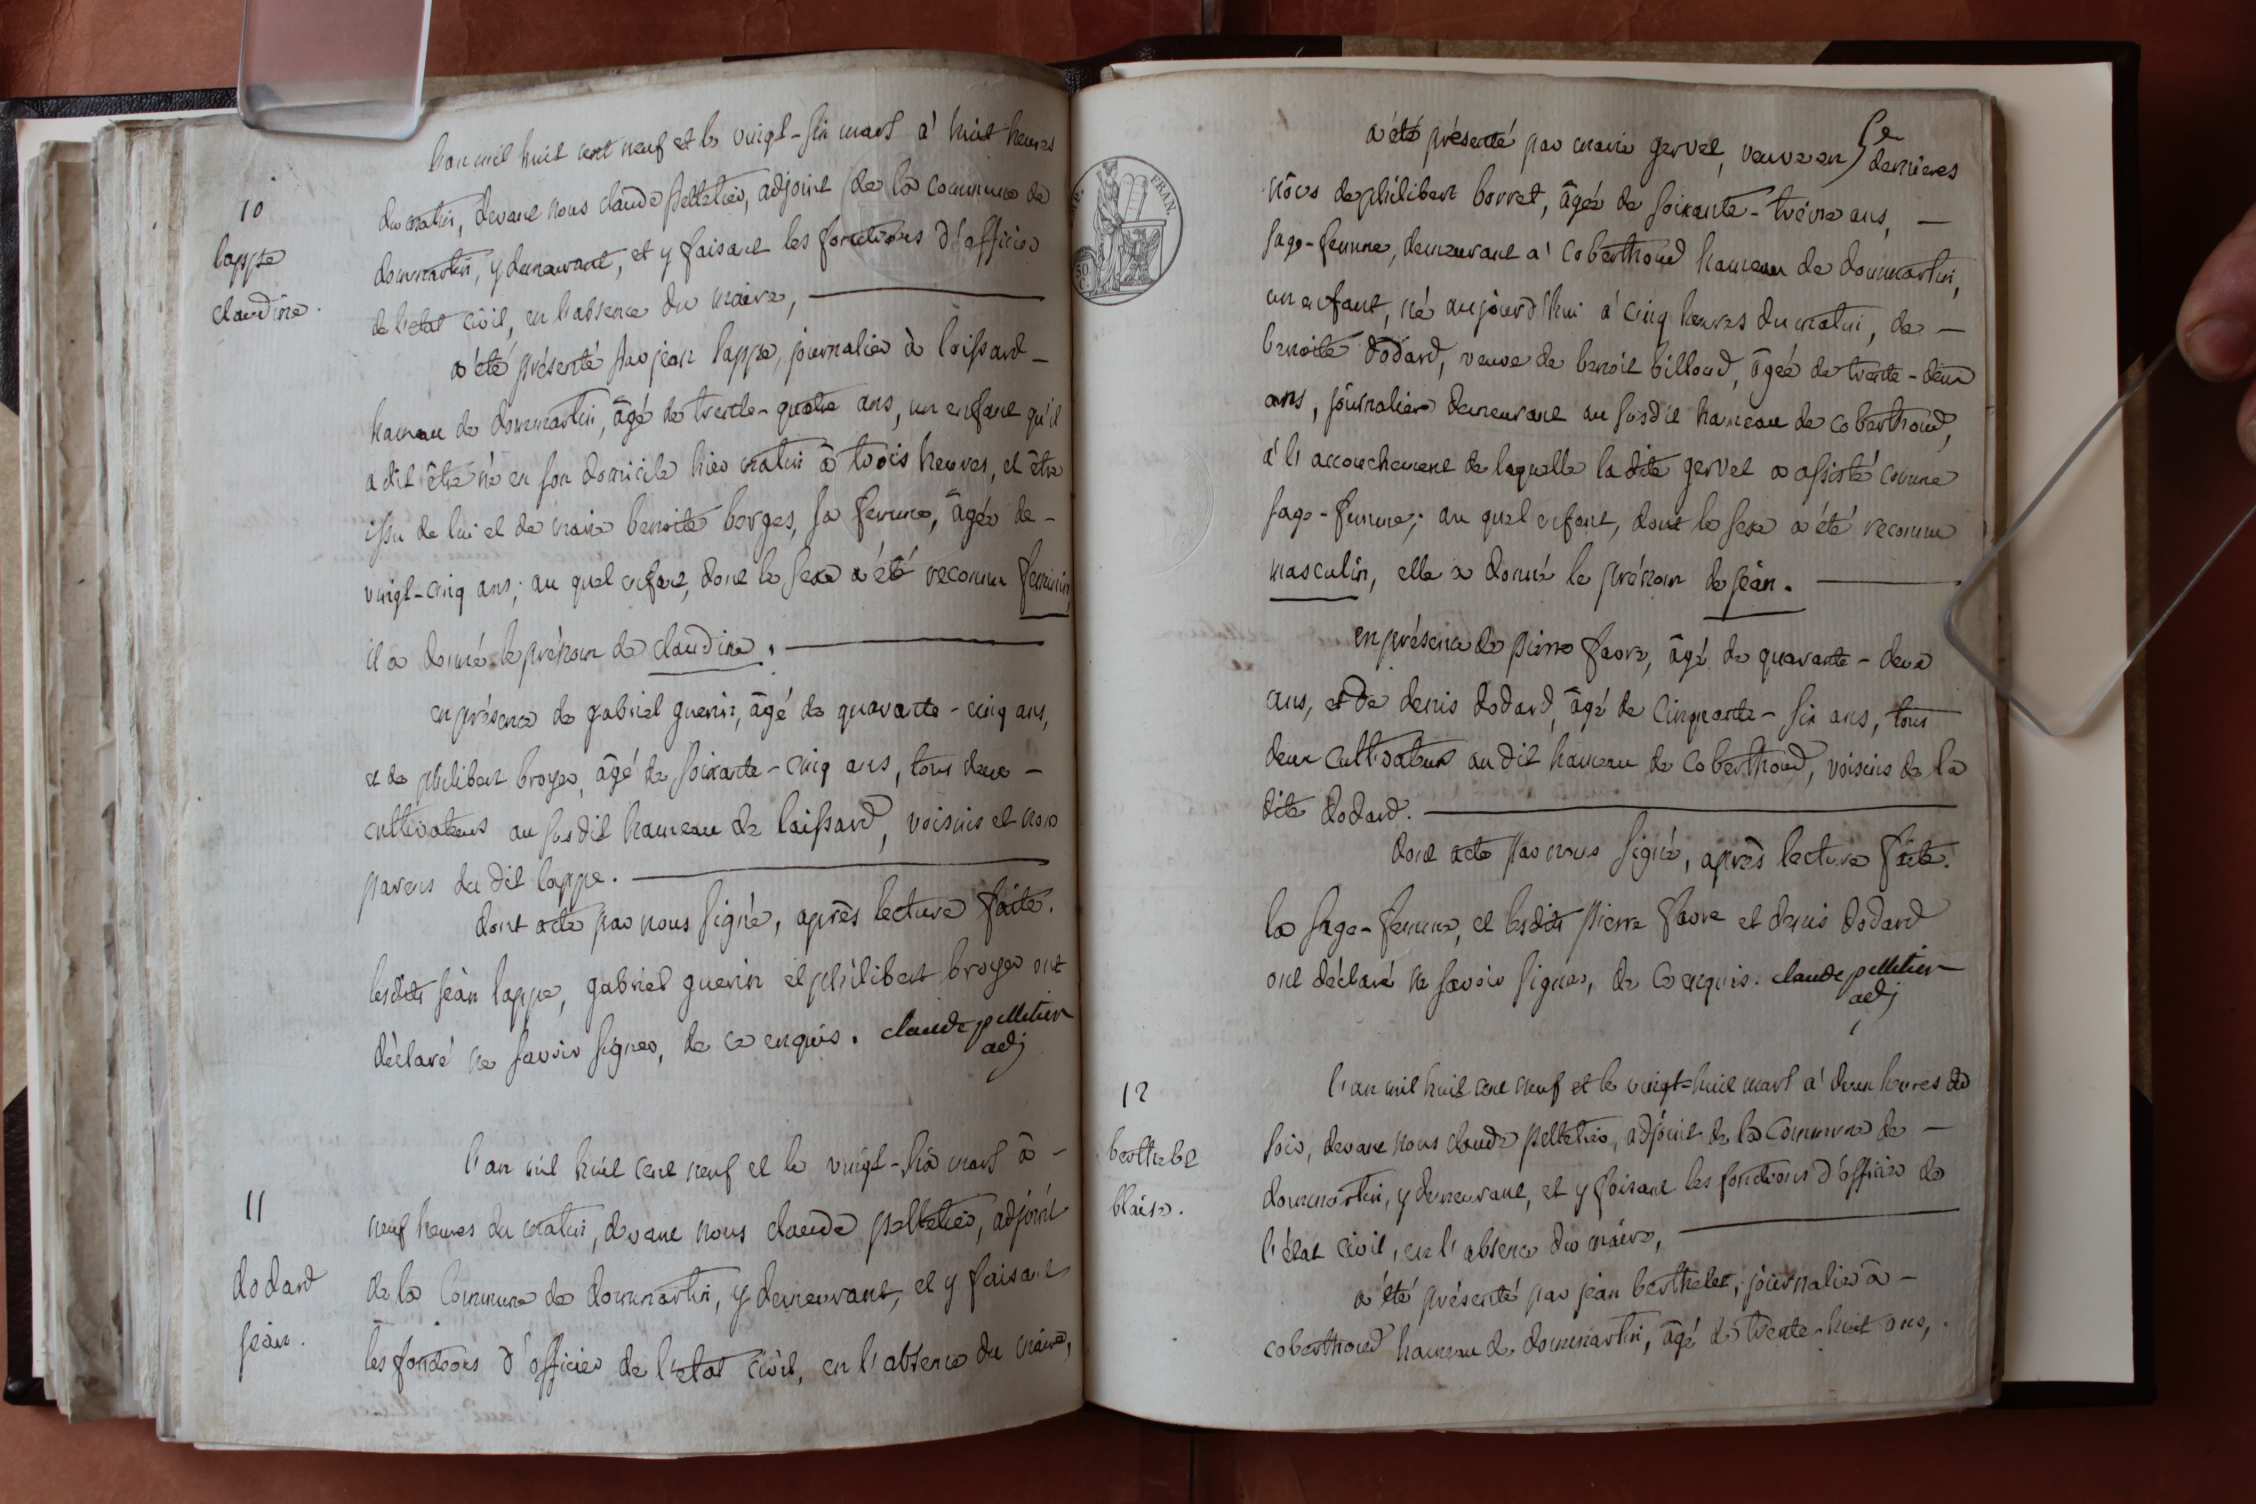 10
lappe
claudine.
l'an mil huit cent neuf et le vingt-six mars à huit heures
du matin, devant nous claude pelletier, adjoint de la commune de
dommartin, y demeurant, et y faisant les fonctions d'officier
de l'etat civil, en l'absence du maire,
a été présenté par jean lappe, journalier à loissard -
hameau de dommartin, âgé de trente-quatre ans, un enfant qu'il
a dit être né en son domicile hier matin à trois heures, et être
issu de lui et de marie benoite borges, sa femme, âgée de -
vingt-cinq ans; au quel enfant, dont le sexe a été reconnu feminin,
il a donné le prénom de claudine.
en présence de gabriel guerin, âgé de quarante-cinq ans,
et de philibert broyer, âgé de soixante-cinq ans, tous deux -
cultivateurs au susdit hameau de loissard, voisins et non
parens du dit lappe.
dont acte par nous signé, après lecture faite.
lesdits jean lappe, gabriel guerin et philibert broyer ont
déclaré ne savoir signer, de ce enquis. claude pelletier
adj
11
dodard
jean.
l'an mil huit cent neuf et le vingt-six mars à -
neuf heures du matin, devant nous claude pelletier, adjoint
de la commune de dommartin, y demeurant, et y faisant
les fonctions d'officier de l'etat civil, en l'absence du maire,
a été présenté par marie gervet, veuve en
dernieres
nôces de philibert borret, âgée de soixante-treize ans, -
sage-femme, demeurant à coberthoud hameau de dommartin,
un enfant, né aujourd'hui à cinq heures du matin, de -
benoite dodard, veuve de benoit billoud, âgée de trente-deux
ans, journaliere demeurant au susdit hameau de coberthoud,
à l'accouchement de laquelle la dite gervet a assisté comme
sage-femme; au quel enfant, dont le sexe a été reconnu
masculin, elle a donné le prénom de jean.
en présence de pierre favre, âgé de quarante-deux
ans, et de denis dodard, âgé de cinquante-six ans, tous
deux cultivateurs au dit hameau de coberthoud, voisins de la
dite dodard.
dont acte par nous signé, après lecture faite.
la sage-femme, et lesdits pierre favre et denis dodard
ont déclaré ne savoir signer, de ce enquis. claude pelletier
adj
12
berthelet
blaise.
l'an mil huit cent neuf et le vingt-huit mars à deux heures du
soir, devant nous claude pelletier, adjoint de la commune de -
dommartin, y demeurant, et y faisant les fonctions d'officier de
l'état civil, en l'absence du maire,
a été présenté par jean berthelet, journalier à -
coberthoud hameau de dommartin, âgé de trente-huit ans,
FRAN.